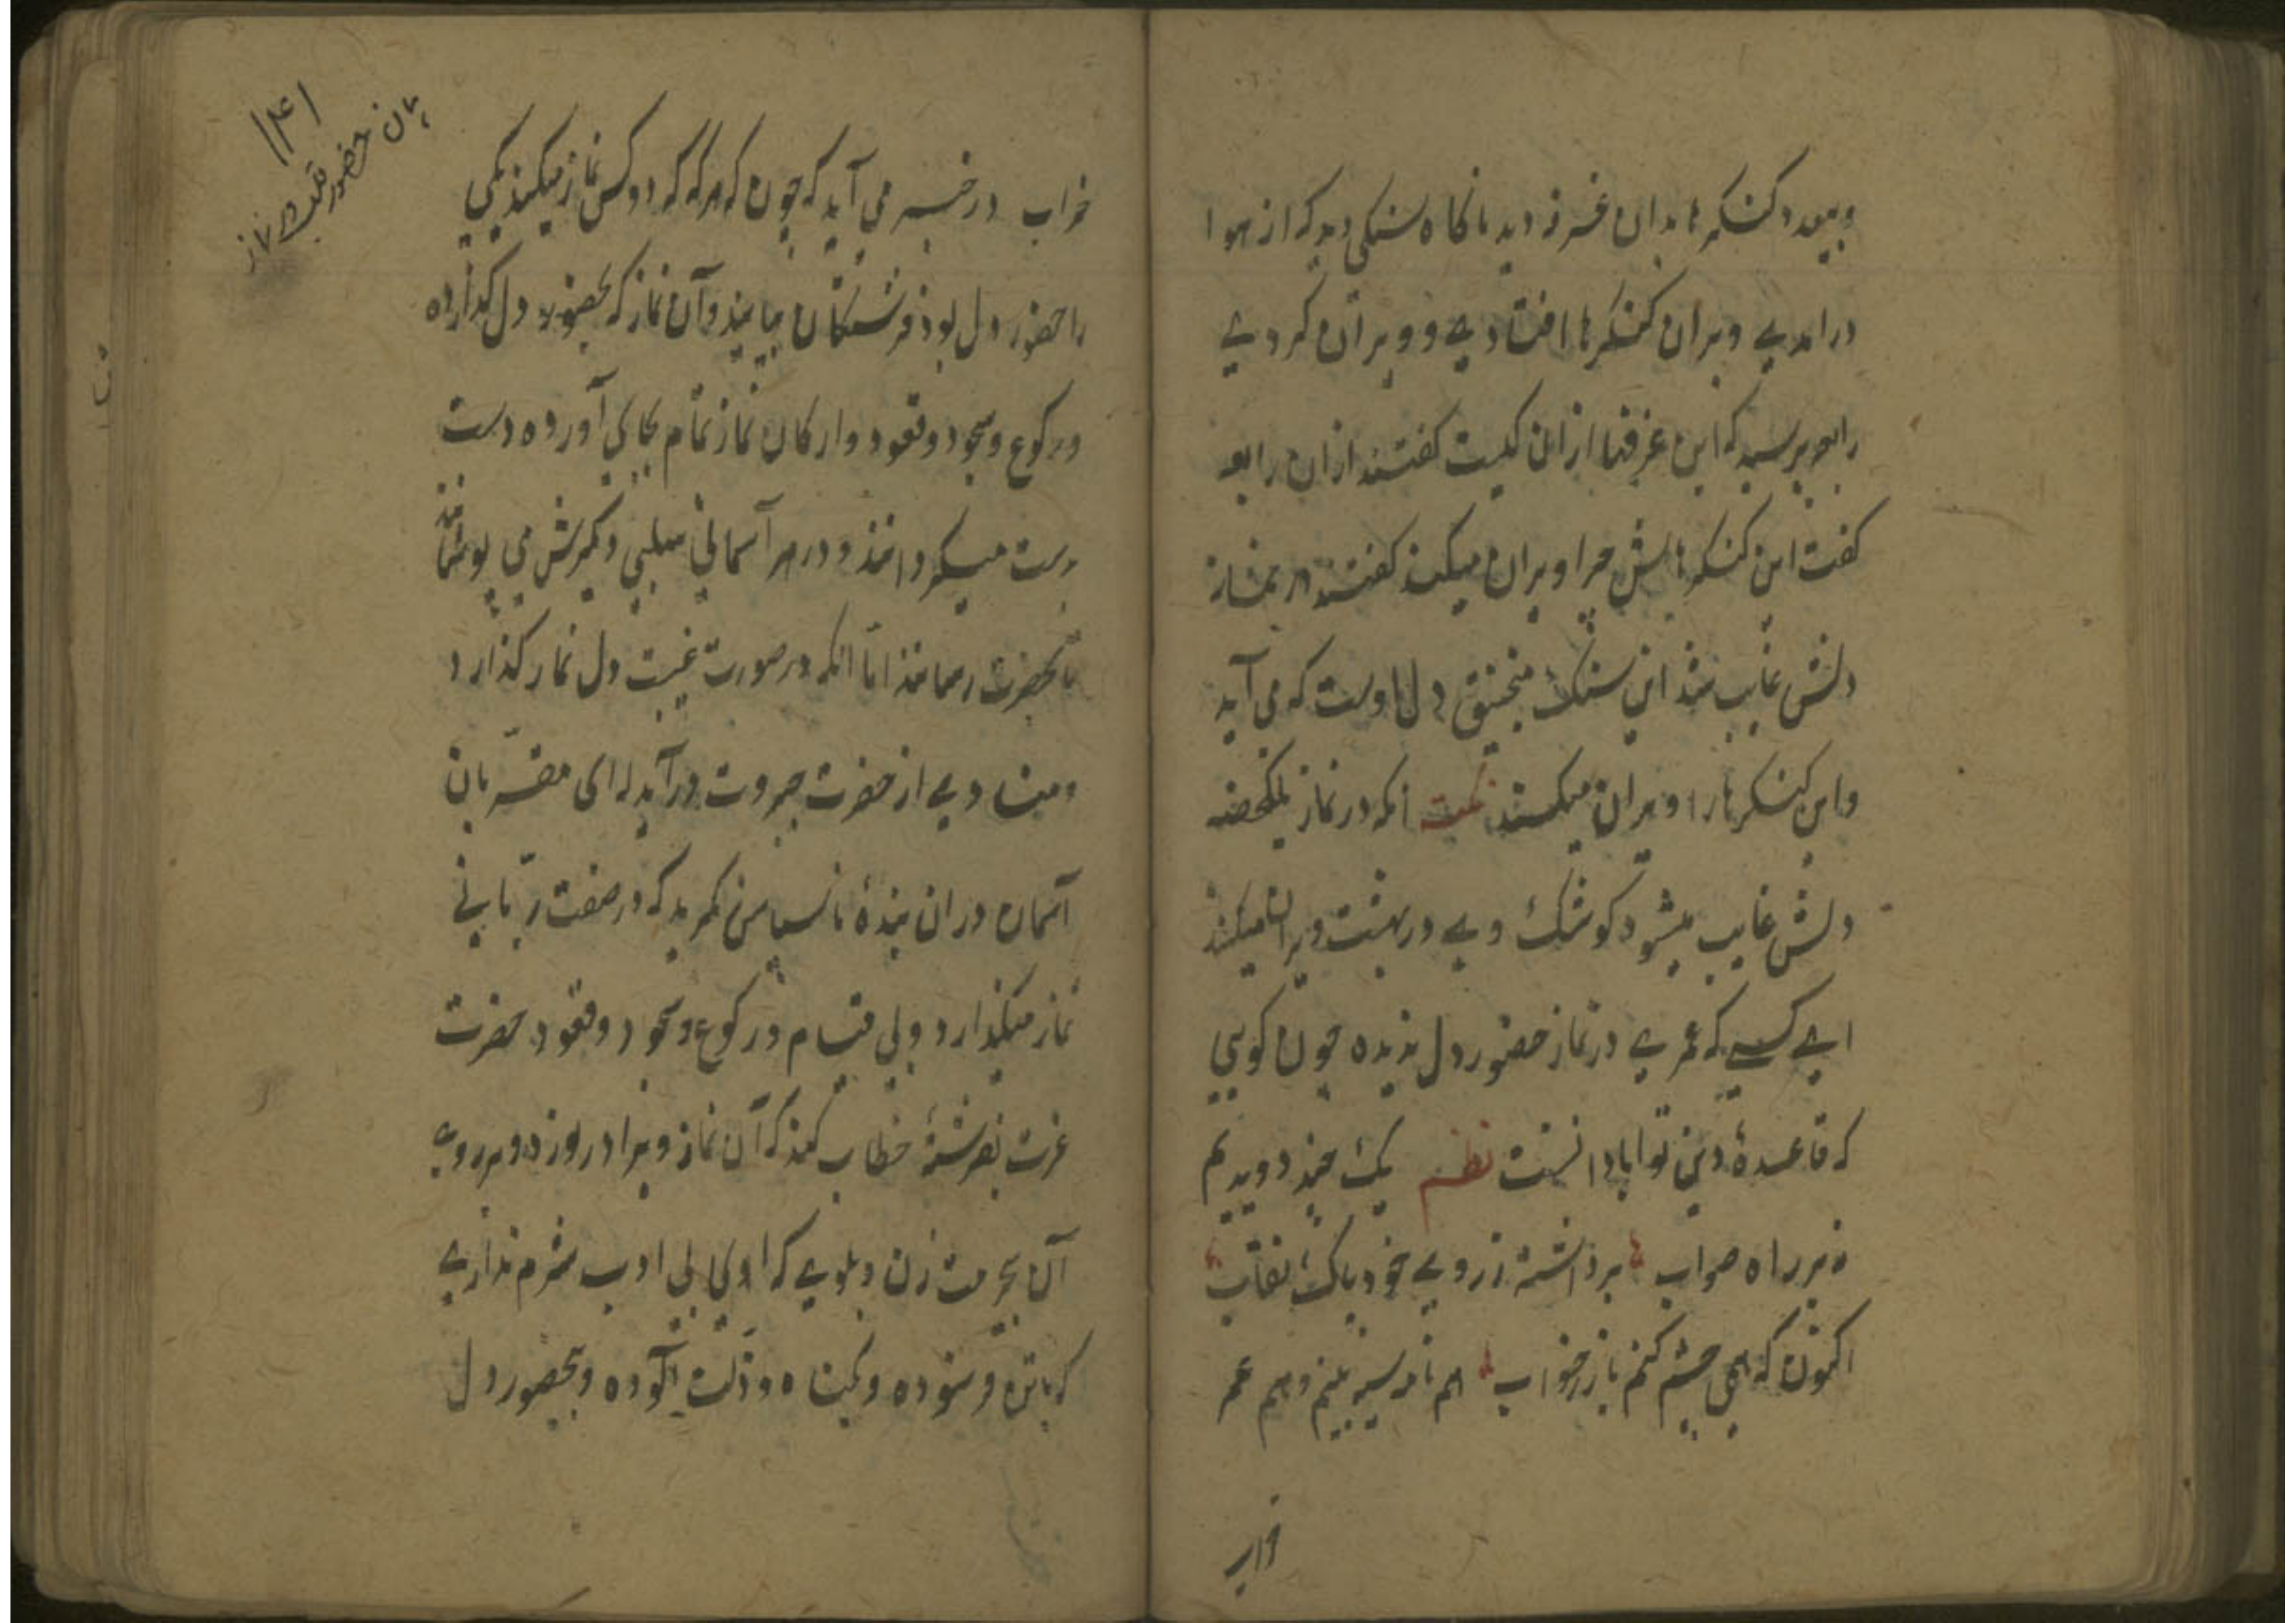 وبعدد کنکرها بدان غرفه دید ناکاه سنکی دید که از هوا
درامدے وبران کنکرها افتادے و ویران کردے
رابعه پرسید که این غرفها ازان کیست کفتند ازان رابعه
کفت این کنکرهایش چرا ویران میکند کفتند در نماز
دلش غایب شد این سنک منجنیق دل اوست که می آید
واین کنکرها را ویران میکند نکته انکه در نماز یکلحضه
دلش غایب میشود کوشک وے در بهشت ویران میکند
اے کسیکه عمرے در نماز حضور دل ندیده چون کویی
که قاعدهٔ دین تو ابادانست نظم یک چند دویدیم
نه بر راه صواب برداشته ز روے خود پاک نقاب
اکنون که همی چشم کنم باز ز خواب هم نامه سیه بینم وهم عمر
خراب
۱۴۱
بیان حضور قلب در نماز
خراب در خبر می آید که چون که هرکه که دو کس نماز میکنند یکی
را حضور دل بود فرشتکان بیایند وآن نماز که بحضور دل کذارده
ورکوع وسجود وقعود وارکان نماز تمام بجای آورده دست
بدست میکردانند و در هر آسمانی میلیی دیکرش می پوشانند
تا بحضرت رسانند اما انکه در صورت غیبت دل نماز کذارد
ومنادے از حضرت جبروت درآید که اى مقربان
آسمان دران بندهٔ ناسپاس نکرید که در صفت ربانی
نماز میکذارد ولی قیام ورکوع وسجود وقعود حضرت
عزت بفرشتهٔ خطاب کند که آن نماز ویرا در روزه وبر روے
آن بیحرمت زن وبکوے که اى بی ادب شرم ندارے
که باتن وسوده وبکناه وذلت آلوده وبیحضور دل